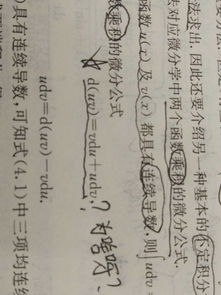 因此还要介绍另一种基本的不定积分
法对应微分学中两个函数乘积的微分公式.
函数 u(x) 及 v(x) 都具有连续导数, 则∫udv
数乘积的微分公式
d(uv)=vdu+udv, ? 为啥呀?
udv=d(uv)-vdu.
)具有连续导数, 可知式(4.1)中三项均连